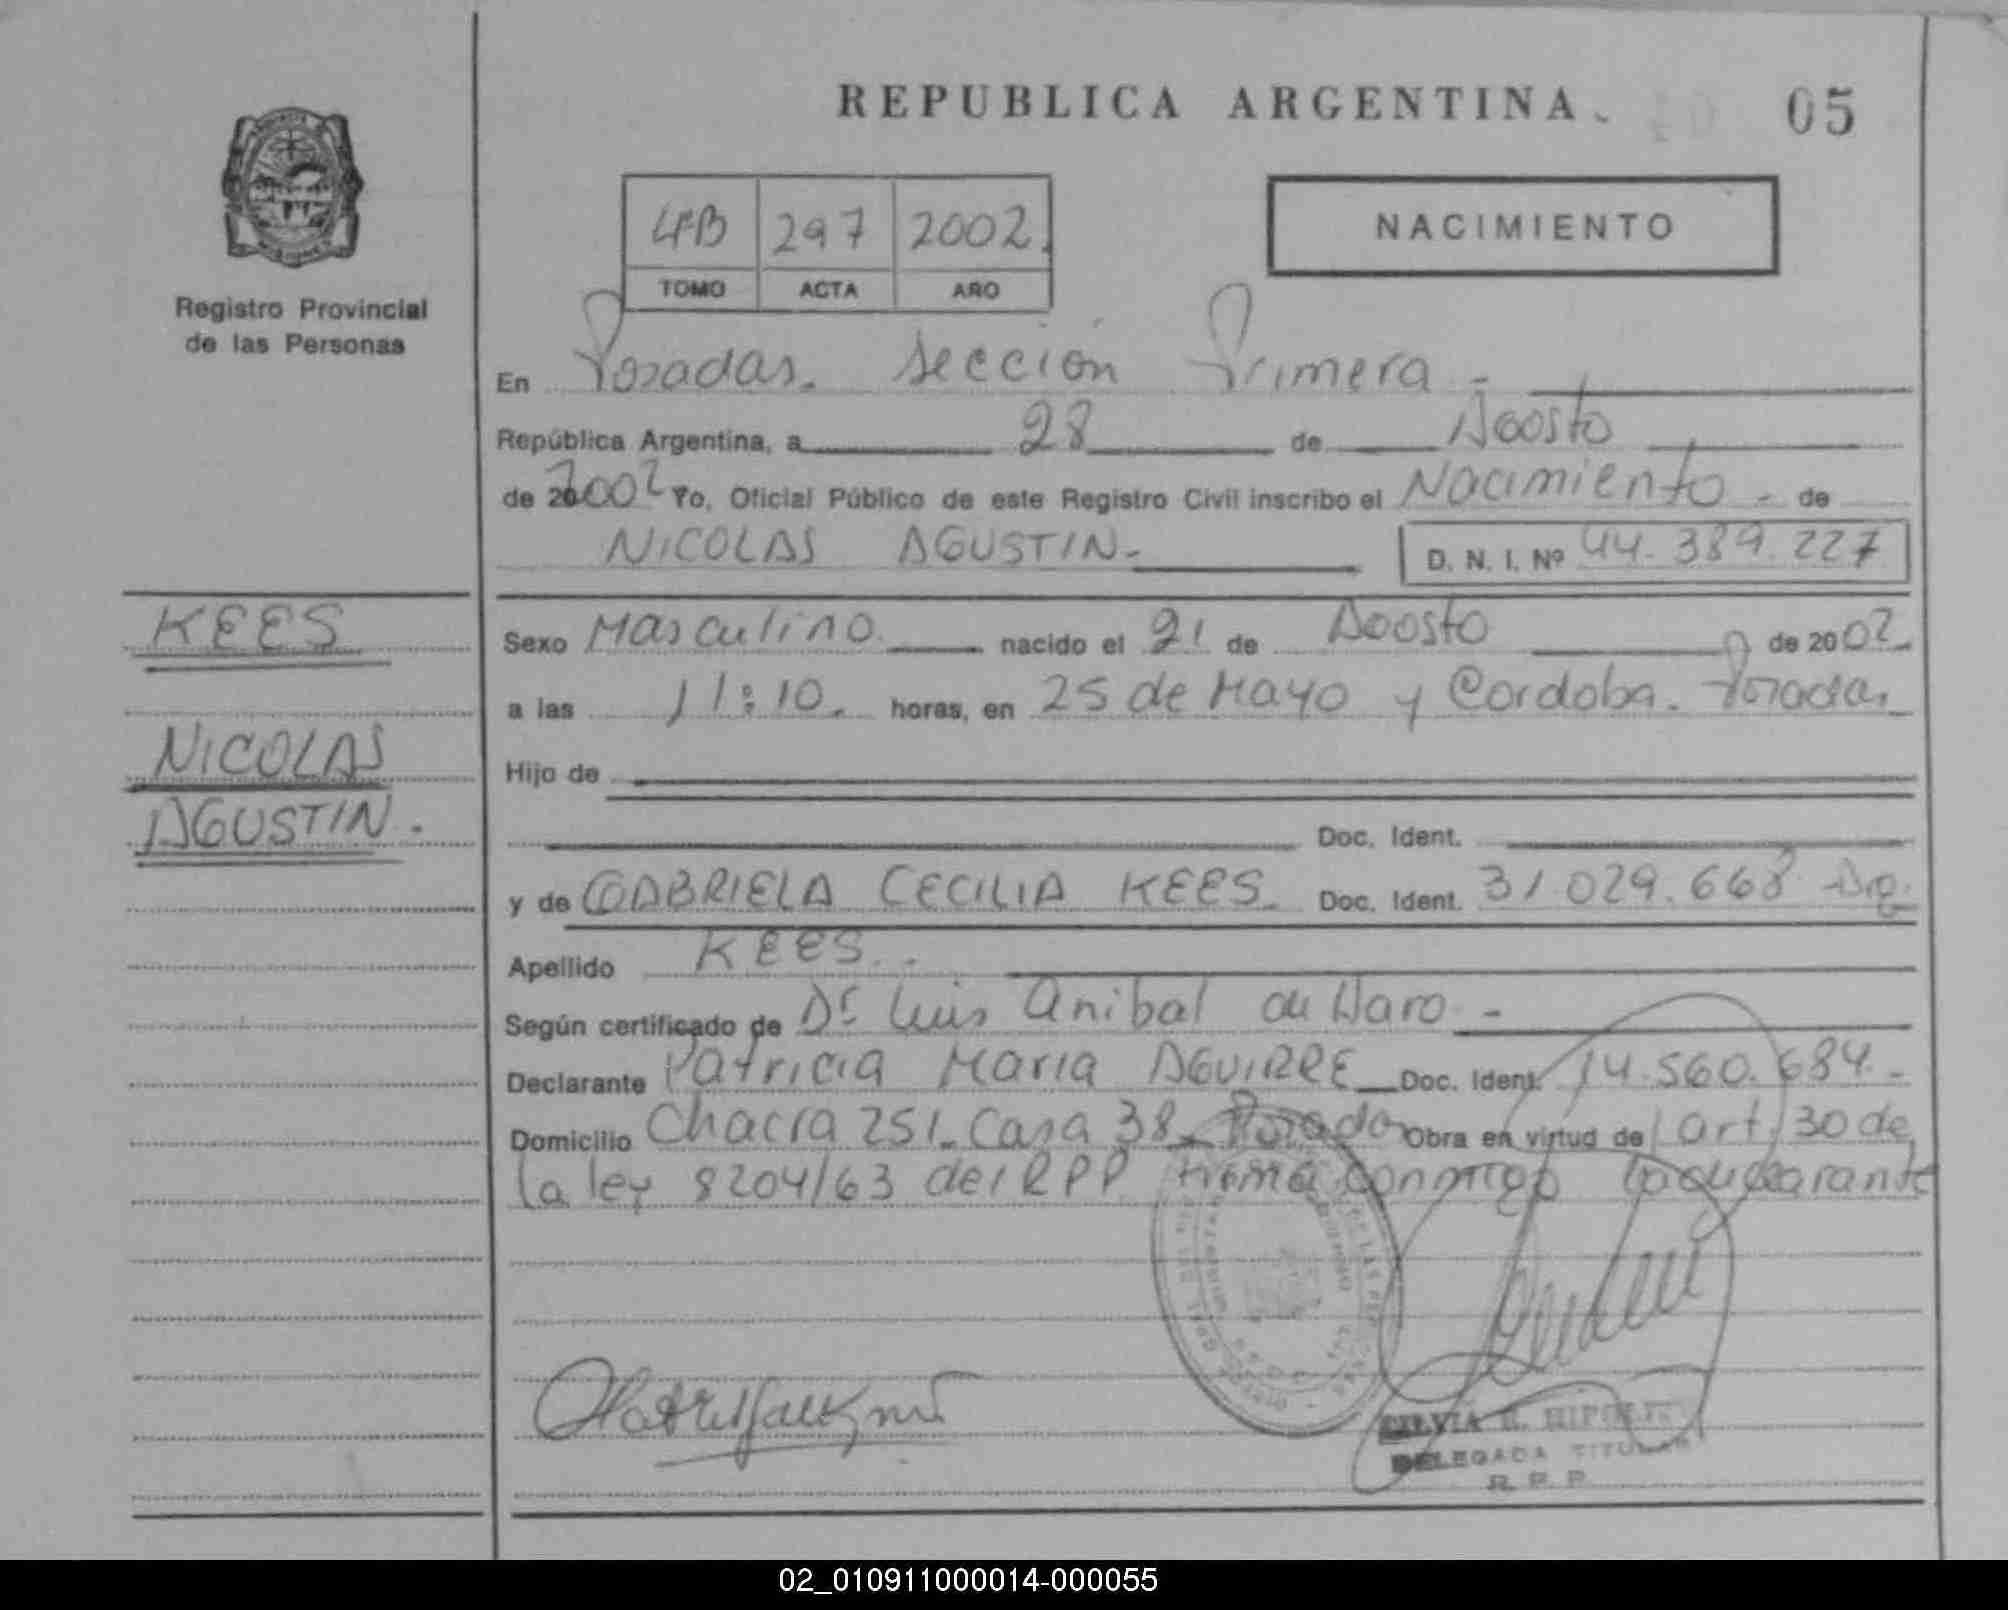 REPUBLICA ARGENTINA.
05
Registro Provincial
de las Personas
4B 297 2002.
TOMO ACTA AÑO
NACIMIENTO
En Posadas. Sección Primera -
República Argentina, a 28 de Agosto
de 2002 Yo, Oficial Público de este Registro Civil inscribo el Nacimiento - de
NICOLAS AGUSTIN.- D. N. I. Nº 44.389.227
KEES
NICOLAS
AGUSTIN.
Sexo Masculino. nacido el 21 de Agosto de 2002.
a las 11:10. horas, en 25 de Mayo y Cordoba. Posadas
Hijo de
Doc. Ident.
y de GABRIELA CECILIA KEES. Doc. Ident. 31.029.668 Arg.
Apellido KEES..
Según certificado de Dr Luis Anibal de Haro -
Declarante Patricia Maria AGUIRRE Doc. Ident. 14.560.684.-
Domicilio Chacra 251. Casa 38. Posadas Obra en virtud del art. 30 de
la ley 8204/63 del RPP firma conmigo la declarante
SILVIA
DELEGADA TITULAR
R. P. P.
02_010911000014-000055